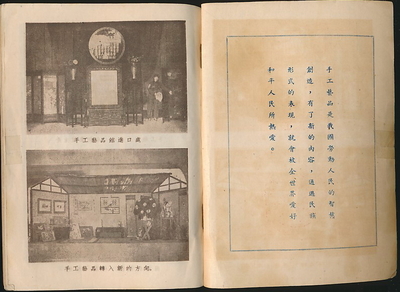 手工藝品館進口處
手工藝品轉入新的方向。
手工藝品是我國勞動人民的智慧
創造，有了新的內容，通過民族
形式的表現，就會被全世界愛好
和平人民所熱愛。